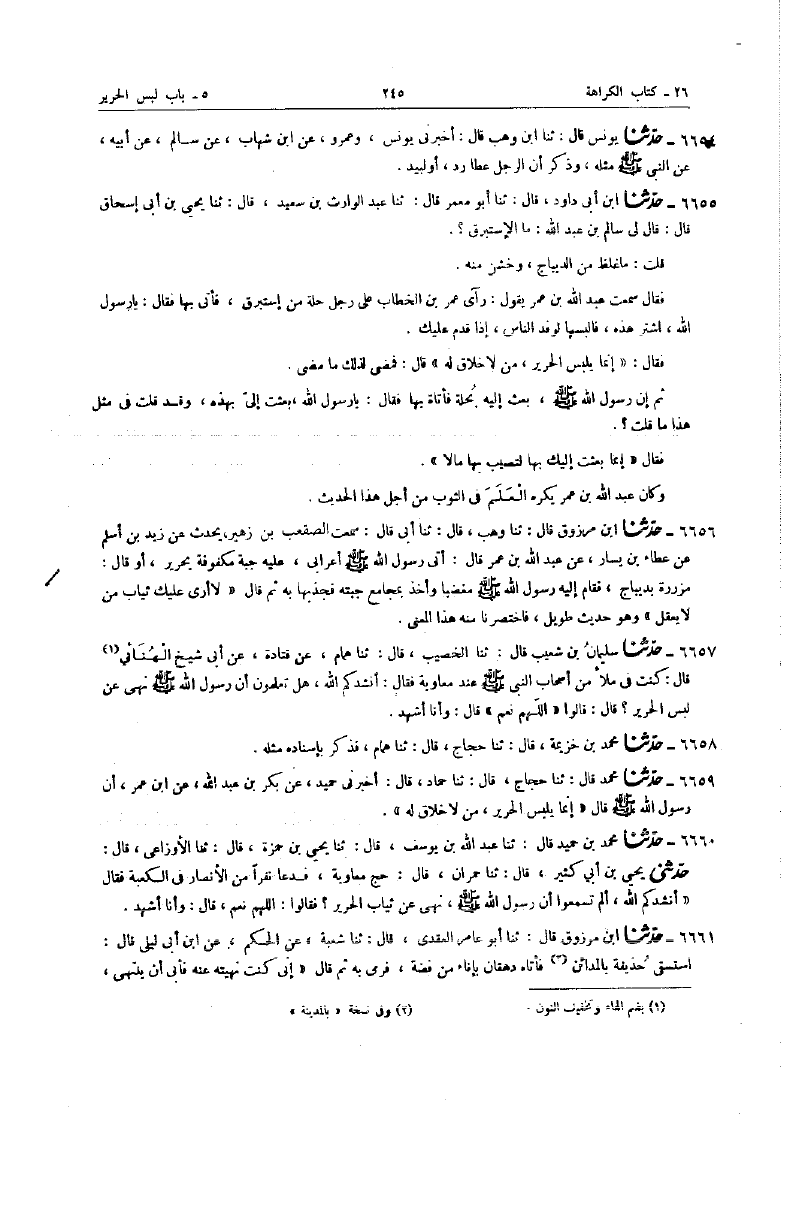 ٢٦ - كتاب الكراهة ٢٤٥ ٥ - باب لبس الحرير
٦٦٥٤ - حدثنا يونس قال : ثنا ابن وهب قال : أخبرنى يونس ، وعمرو ، عن ابن شهاب ، عن سالم ، عن أبيه ،
عن النبي ﷺ مثله ، وذكر أن الرجل عطارد ، أولبيد .
٦٦٥٥ - حدثنا ابن أبى داود ، قال : ثنا أبو معمر قال : ثنا عبد الوارث بن سعيد ، قال : ثنا يحيى بن أبى إسحاق
قال : قال لى سالم بن عبد الله : ما الإستبرق ؟ .
قلت : ماغلظ من الديباج ، وخشن منه .
فقال سمعت عبد الله بن عمر يقول : رآى عمر بن الخطاب على رجل حلة من إستبرق ، فأتى بها فقال : يارسول
الله ، اشتر هذه ، فالبسها لوفد الناس ، إذا قدم عليك .
فقال : « إنما يلبس الحرير ، من لاخلاق له » قال : فمضى لذلك ما مضى .
ثم إن رسول الله ﷺ ، بعث إليه بُحلة فأتاه بها فقال : يارسول الله ،بعثت إلىّ بهذه ، وقد قلت فى مثل
هذا ما قلت ؟ .
فقال « إنما بعثت إليك بها لتصيب بها مالا » .
وكان عبد الله بن عمر يكره الْعَلَمَ فى الثوب من أجل هذا الحديث .
٦٦٥٦ - حدثنا ابن مرزوق قال : ثنا وهب ، قال : ثنا أبى قال : سمعت الصقعب بن زهير،يحدث عن زيد بن أسلم
عن عطاء بن يسار ، عن عبد الله بن عمر قال : أتى رسول الله ﷺ أعرابى ، عليه جبة مكفوفة بحرير ، أو قال :
مزررة بديباج ، فقام إليه رسول الله ﷺ مغضبا وأخذ بمجامع جبته فجذبها به ثم قال « لاأرى عليك ثياب من
لايعقل » وهو حديث طويل ، فاختصرنا منه هذا المعنى .
٦٦٥٧ - حدثنا سليمانُ بن شعيب قال : ثنا الخصيب ، قال : ثنا همام ، عن قتادة ، عن أبى شيخ الْهُنَائي(١)
قال : كنت فى ملأ من أصحاب النبى ﷺ عند معاوية فقال : أنشدكم الله ، هل تعلمون أن رسول الله ﷺ نهى عن
لبس الحرير ؟ قال : قالوا « اللّهم نعم » قال : وأنا أشهد .
٦٦٥٨ - حدثنا محمد بن خزيمة ، قال : ثنا حجاج ، قال : ثنا همام ، فذكر بإسناده مثله .
٦٦٥٩ - حدثنا محمد قال : ثنا حجاج ، قال : ثنا حماد ، قال : أخبرنى حميد ، عن بكر بن عبد الله ، عن ابن عمر ، أن
رسول الله ﷺ قال « إنما يلبس الحرير ، من لاخلاق له » .
٦٦٦٠ - حدثنا محمد بن حميد قال : ثنا عبد الله بن يوسف ، قال : ثنا يحيى بن حمزة ، قال : ثنا الأوزاعى ، قال :
حدثنى يحيى بن أبي كثير ، قال : ثنا حمران ، قال : حج معاوية ، فدعا نفراً من الأنصار فى الكعبة فقال
« أنشدكم الله ، ألم تسمعوا أن رسول الله ﷺ ، نهى عن ثياب الحرير ؟ فقالوا : اللهم نعم ، قال : وأنا أشهد .
٦٦٦١ - حدثنا ابن مرزوق قال : ثنا أبو عامر العقدى ، قال : ثنا شعبة ، عن الحكم ، عن ابن أبى ليلى قال :
استسقى حُذيفة بالمدائن (٢) فأتاه دهقان بإناء من فضة ، فرمى به ثم قال « إنى كنت نهيته عنه فأبى أن ينتهى ،
(١) بضم الهاء وتخفيف النون . (٢) وفى نسخة « بالمدينة »